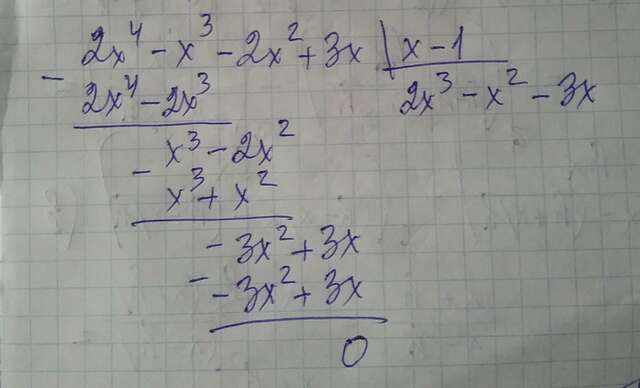 - 2x⁴ - x³ - 2x² + 3x | x - 1
2x⁴ - 2x³ 2x³ - x² - 3x
- x³ - 2x²
x³ + x²
- 3x² + 3x
- - 3x² + 3x
0